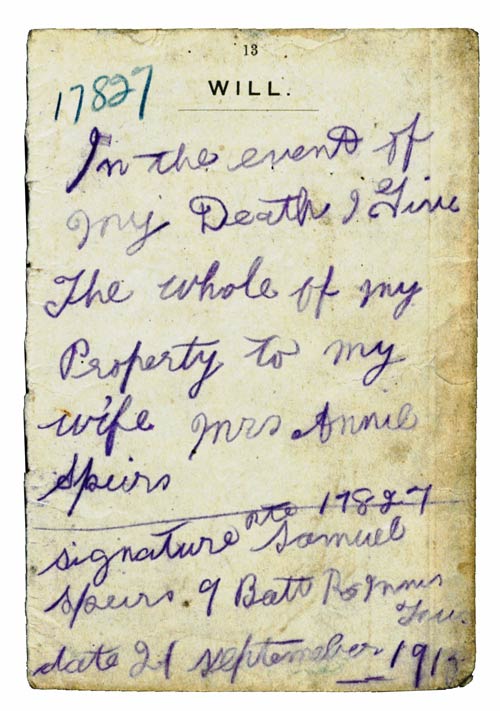 13
WILL.
17827
In the event of
my Death I Give
The whole of my
Property to my
wife Mrs Annie
Speirs
Pte 17827
signature Samuel
Speirs. 9 Batt R.
Fus
date 21 September 191